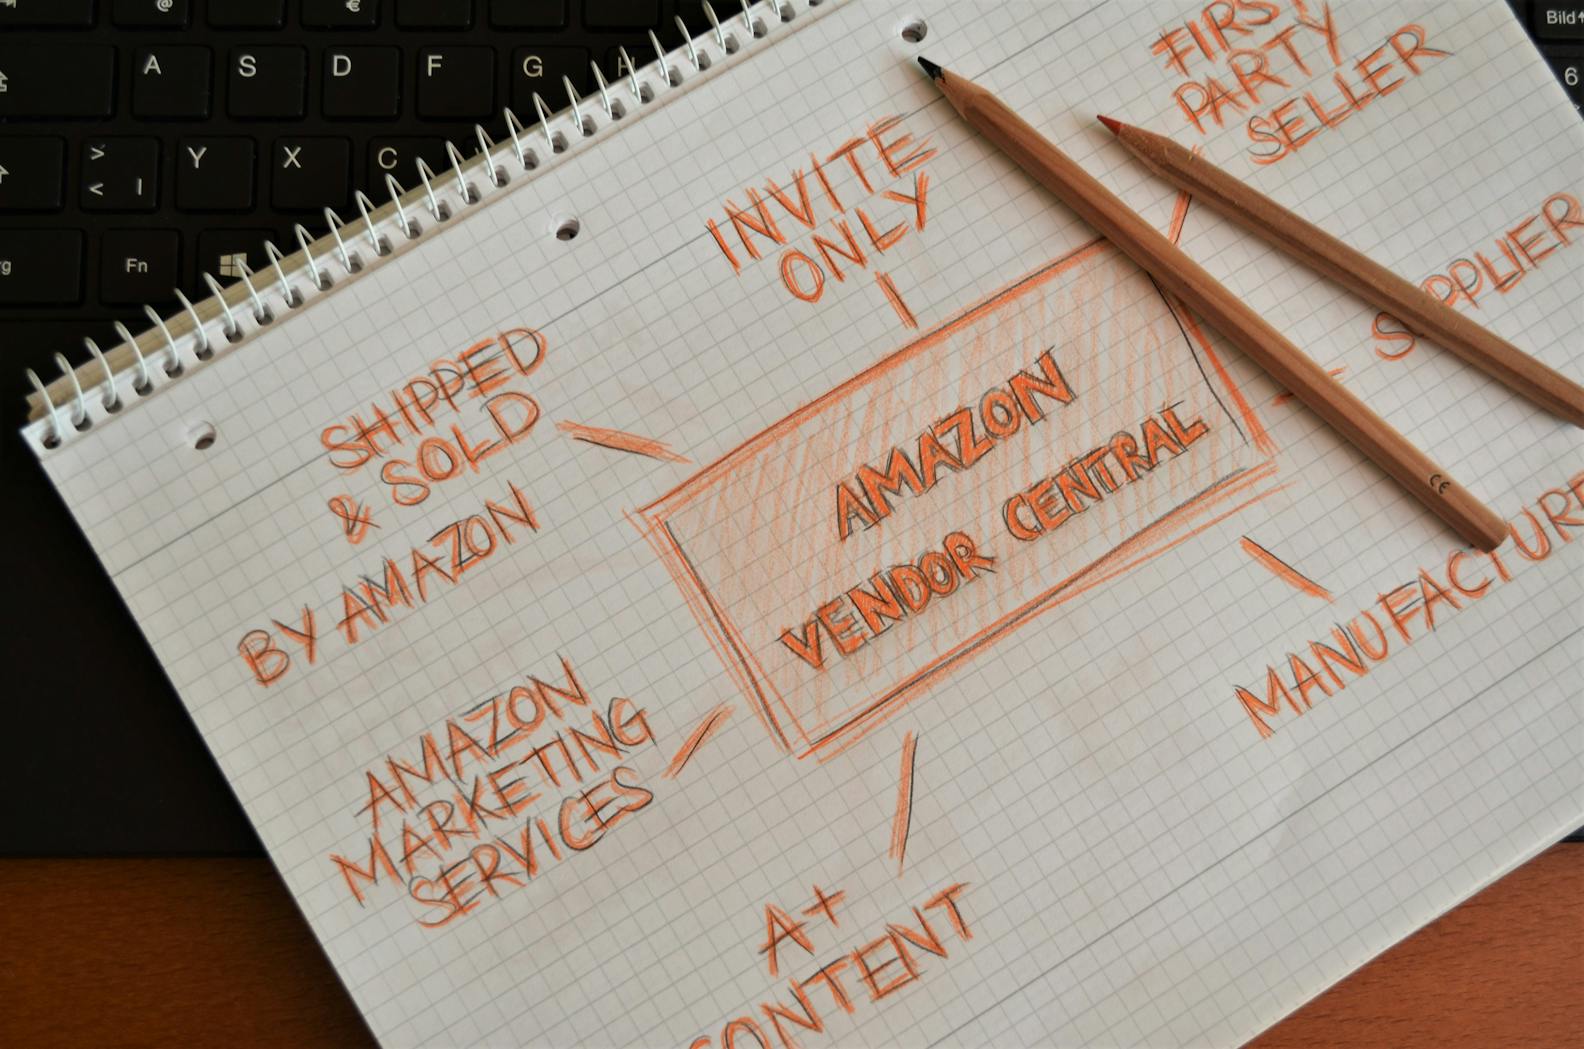 @
€
A S D F G H
Bild
6
>
< |
Y X C
rg
Fn
FIRST
PARTY
SELLER
INVITE
ONLY
SUPPLIER
SHIPPED
& SOLD
BY AMAZON
AMAZON
VENDOR CENTRAL
CE
MANUFACTURE
AMAZON
MARKETING
SERVICES
A+
CONTENT